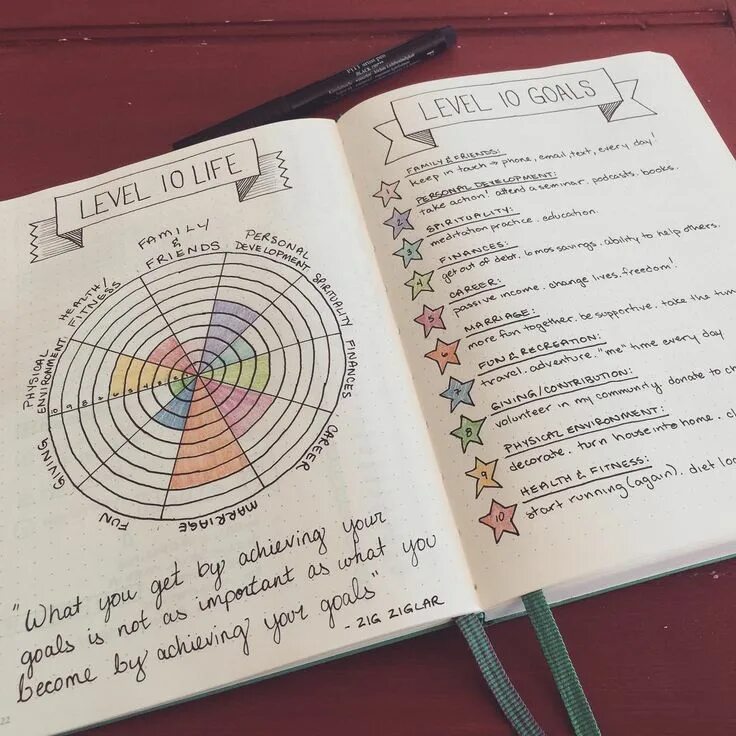 PITT artist pen
BLACK
LEVEL 10 LIFE
FAMILY
&
FRIENDS
PERSONAL
DEVELOPMENT
SPIRITUALITY
FINANCES
CAREER
MARRIAGE
FUN
GIVING
PHYSICAL
ENVIRONMENT
HEALTH/
FITNESS
"What you get by achieving your
goals is not as important as what you
become by achieving your goals"
- ZIG ZIGLAR
22
LEVEL 10 GOALS
1
FAMILY & FRIENDS:
keep in touch → phone, email, text, every day!
2
PERSONAL DEVELOPMENT:
take action! attend a seminar. podcasts. books.
3
SPIRITUALITY:
meditation practice. education.
4
FINANCES:
get out of debt. 6 mos savings. ability to help others.
5
CAREER:
passive income. change lives. freedom!
6
MARRIAGE:
more fun together. be supportive. take the time
7
FUN & RECREATION:
travel. adventure. "me" time every day
8
GIVING/CONTRIBUTION:
volunteer in my community donate to
9
PHYSICAL ENVIRONMENT:
decorate. turn house into home.
10
HEALTH & FITNESS:
start running (again). diet